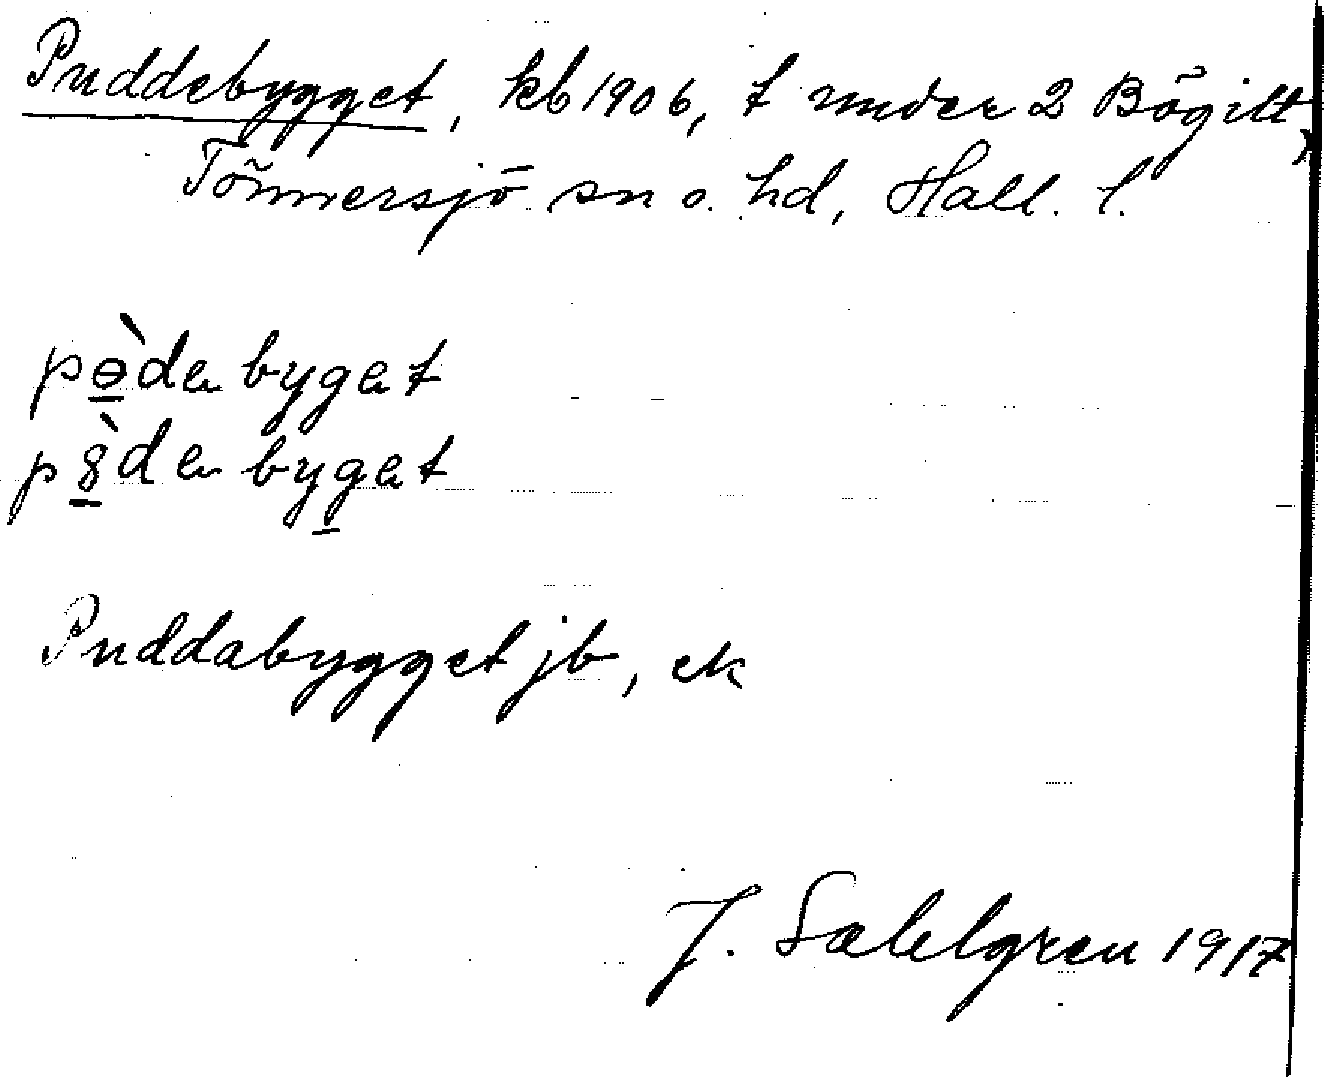 Puddebygget, kb 1906, t under 2 Bögilt,
Tönnersjö sn o. hd, Hall. l.
pɵ̀dabygat
pàbygat
Puddabygget jb, ek
J. Sahlgren 1917